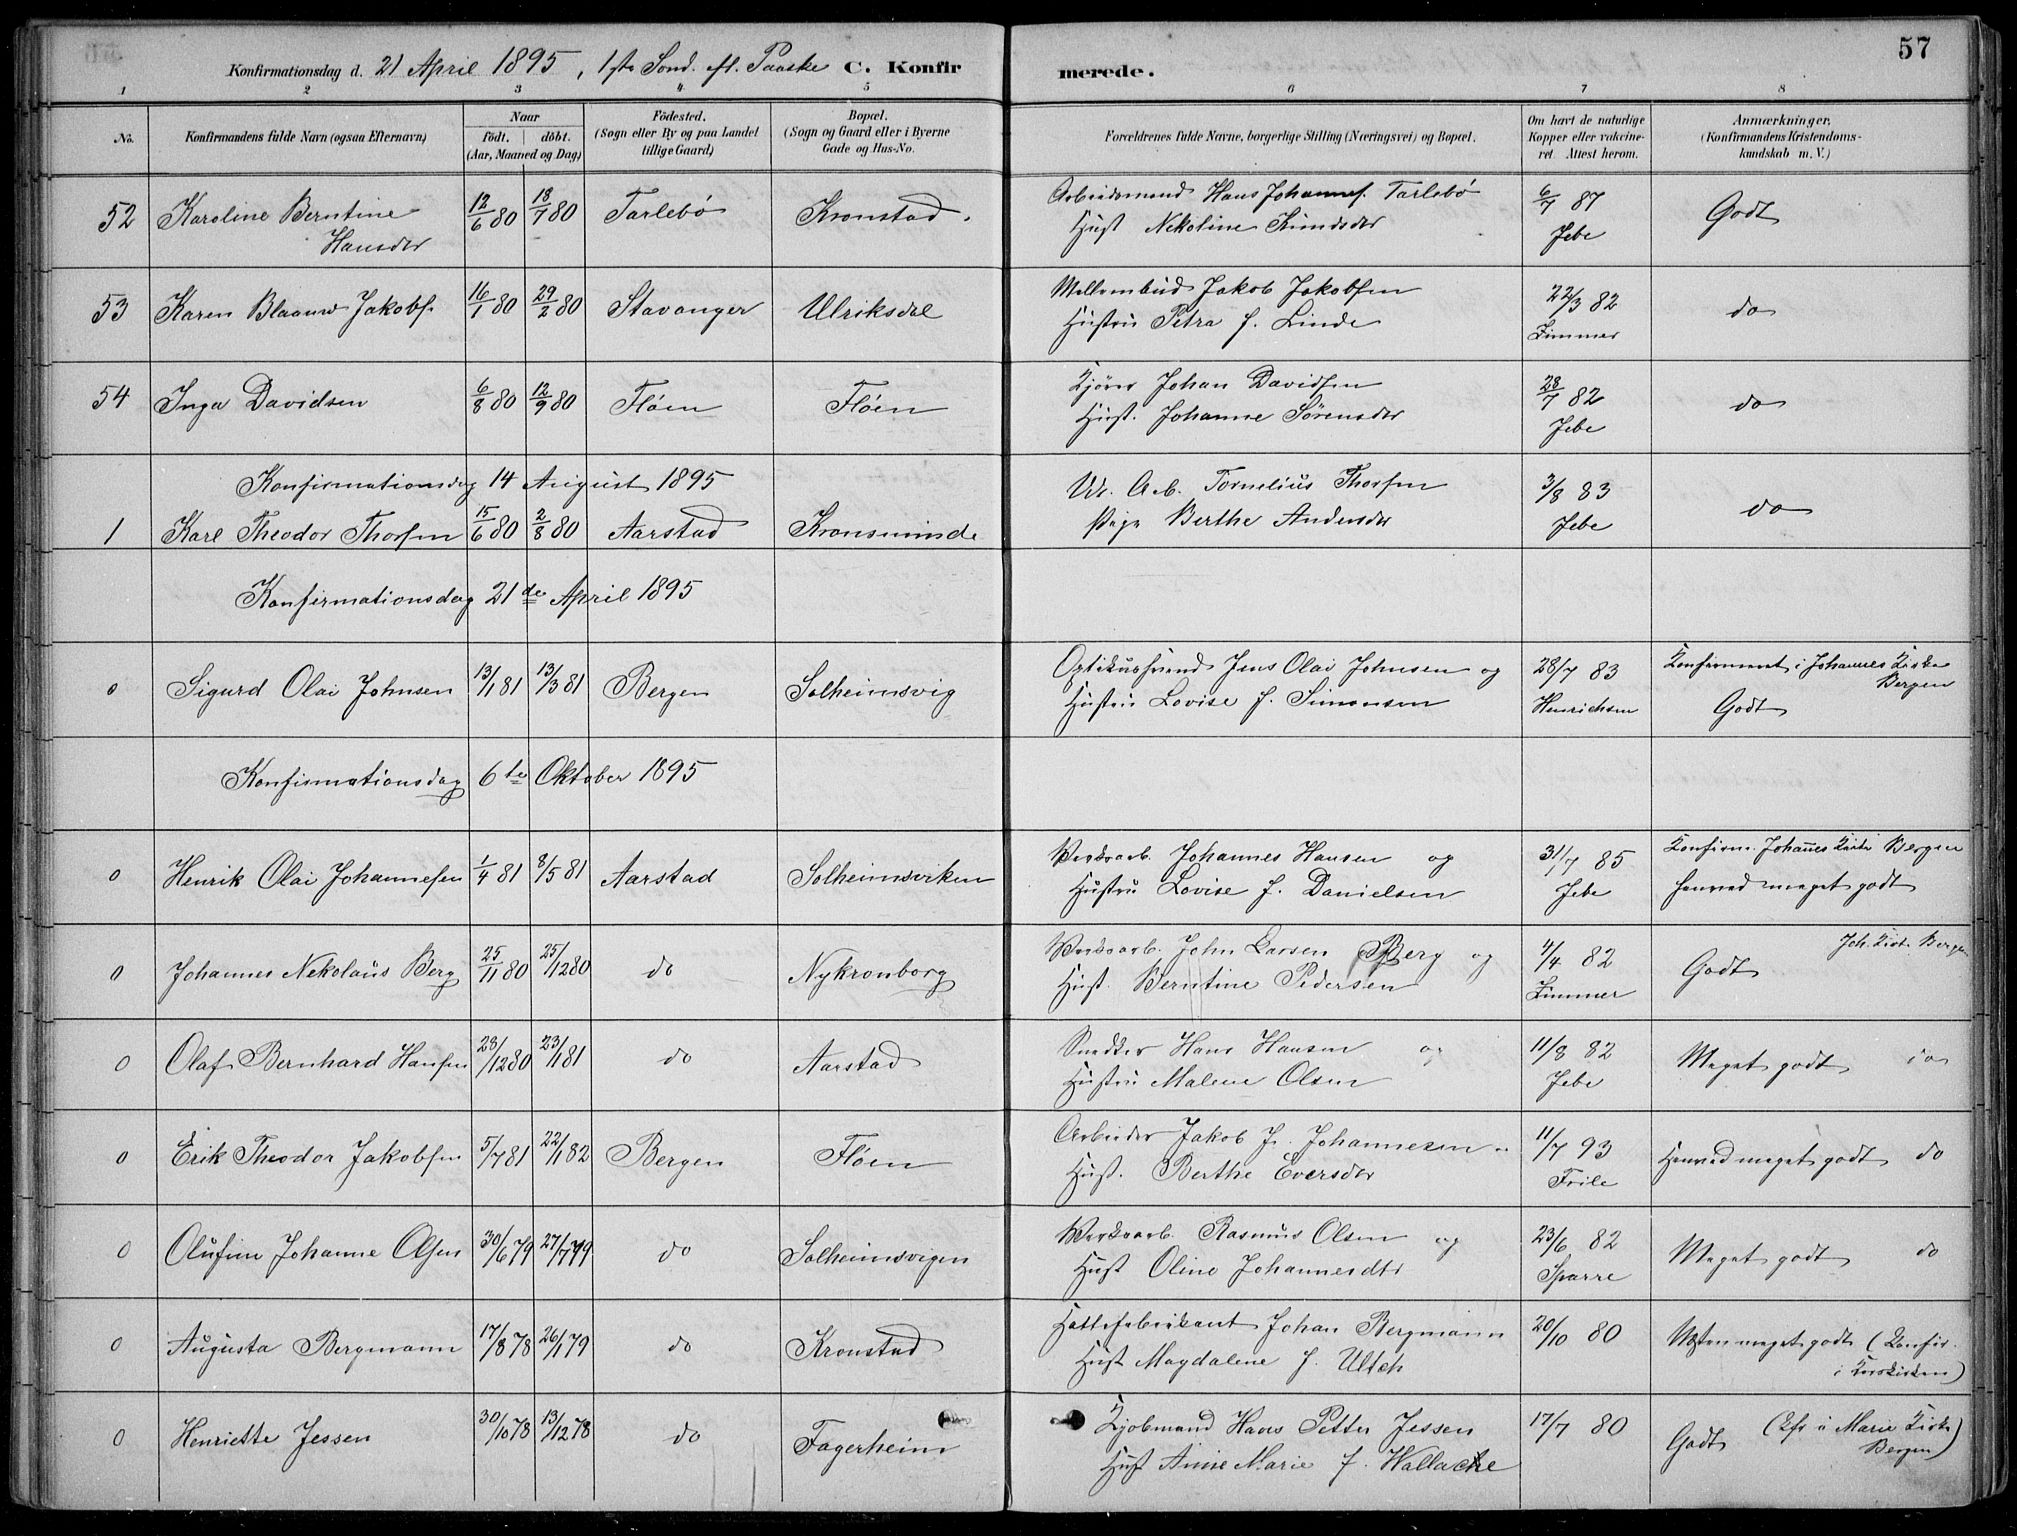 57
Konfirmationsdag d. 21 April 1895, 1ste Sønd. eft. Paaske C. Konfirmerede.
1 2 3 4 5 6 7 8
No. Konfirmandens fulde Navn (ogsaa Efternavn) Naar født. døbt. (Aar, Maaned og Dag) Fødested. (Sogn eller By og paa Landet tillige Gaard) Bopæl. (Sogn og Gaard eller i Byerne Gade og Hus-No. Forældrenes fulde Navne, borgerlige Stilling (Næringsvei) og Bopæl. Om havt de naturlige Kopper eller vaccineret. Attest herom. Anmærkninger, (Konfirmandens Kristendomskundskab m. V.)
52 Karoline Berntine 12/6 80 18/7 80 Tarlebö Kronstad. Arbeidsmand Hans Johannes. Tarlebö 6/7 87 Godt
Hansdtr Hust Nekoline Knudsdtr Jebe
53 Karen Blaauw Jakobs. 16/1 80 29/2 80 Stavanger Ulriksdal Mellembud Jakob Jakobsen 22/3 82 do
Hustru Petra f. Linde Zimmer
54 Inga Davidsen 6/8 80 12/9 80 Flöen Flöen Kjörer Johan Davidsen 28/7 82 do
Hust. Johanne Sörensdtr Jebe
Konfirmationsdag 14 August 1895
1 Karl Theodor Thorsen 15/6 80 2/8 80 Aarstad Kronsminde Ur. Arb. Tornelius Thorsen 3/8 83 do
Pige Berthe Andersdtr Jebe
Konfirmationsdag 21de April 1895
0 Sigurd Olai Johnsen 13/1 81 13/3 81 Bergen Solheimsvig Jens Olai Johnsen og 28/7 83 Konfirmeret i Johannes Kirke Bergen
Hustru Lovise f. Simonsen Henrichsen Godt
Konfirmationsdag 6te Oktober 1895
0 Henrik Olai Johannesen 1/4 81 8/5 81 Aarstad Solheimsviken Værksarb. Johannes Hansen og 31/7 85 Konfirm. Johannes Kirke Bergen
Hustru Lovise f. Danielsen Jebe henved meget godt
0 Johannes Nekolaus Berg 25/11 80 25/12 80 do Nykronborg Værksarb. John Larsen Berg og 4/4 82 Godt Joh. Kirk. Bergen
Hust. Berntine Pedersen Zimmer
0 Olaf Bernhard Hansen 23/12 80 23/1 81 do Aarstad Snedker Hans Hansen og 11/8 82 Meget godt do
Hustru Malene Olsen Jebe
0 Erik Theodor Jakobsen 5/7 81 22/1 82 Bergen Flöen Arbeider Jakob J. Johannesen " 11/7 93 Henved meget godt do
Hust. Berthe Eversdtr Frile
0 Olufine Johanne Olsen 30/6 79 27/7 79 do Solheimsvigen Værksarb. Rasmus Olsen og 23/6 82 Meget godt do
Hust Oline Johannesdtr Sparre
0 Augusta Bergmann 17/8 78 26/1 79 do Kronstad Hattefabrikant Johan Bergmann 20/10 80 Næsten meget godt (Konfir.
Hust Magdalene f. Ultch i Korskirken)
0 Henriette Jessen 30/10 78 13/12 78 do Fagerheim Kjøbmand Hans Petter Jessen 17/7 80 Godt (Kfr i Marie Kirke
Hust Anne Marie f. Wallache Bergen)